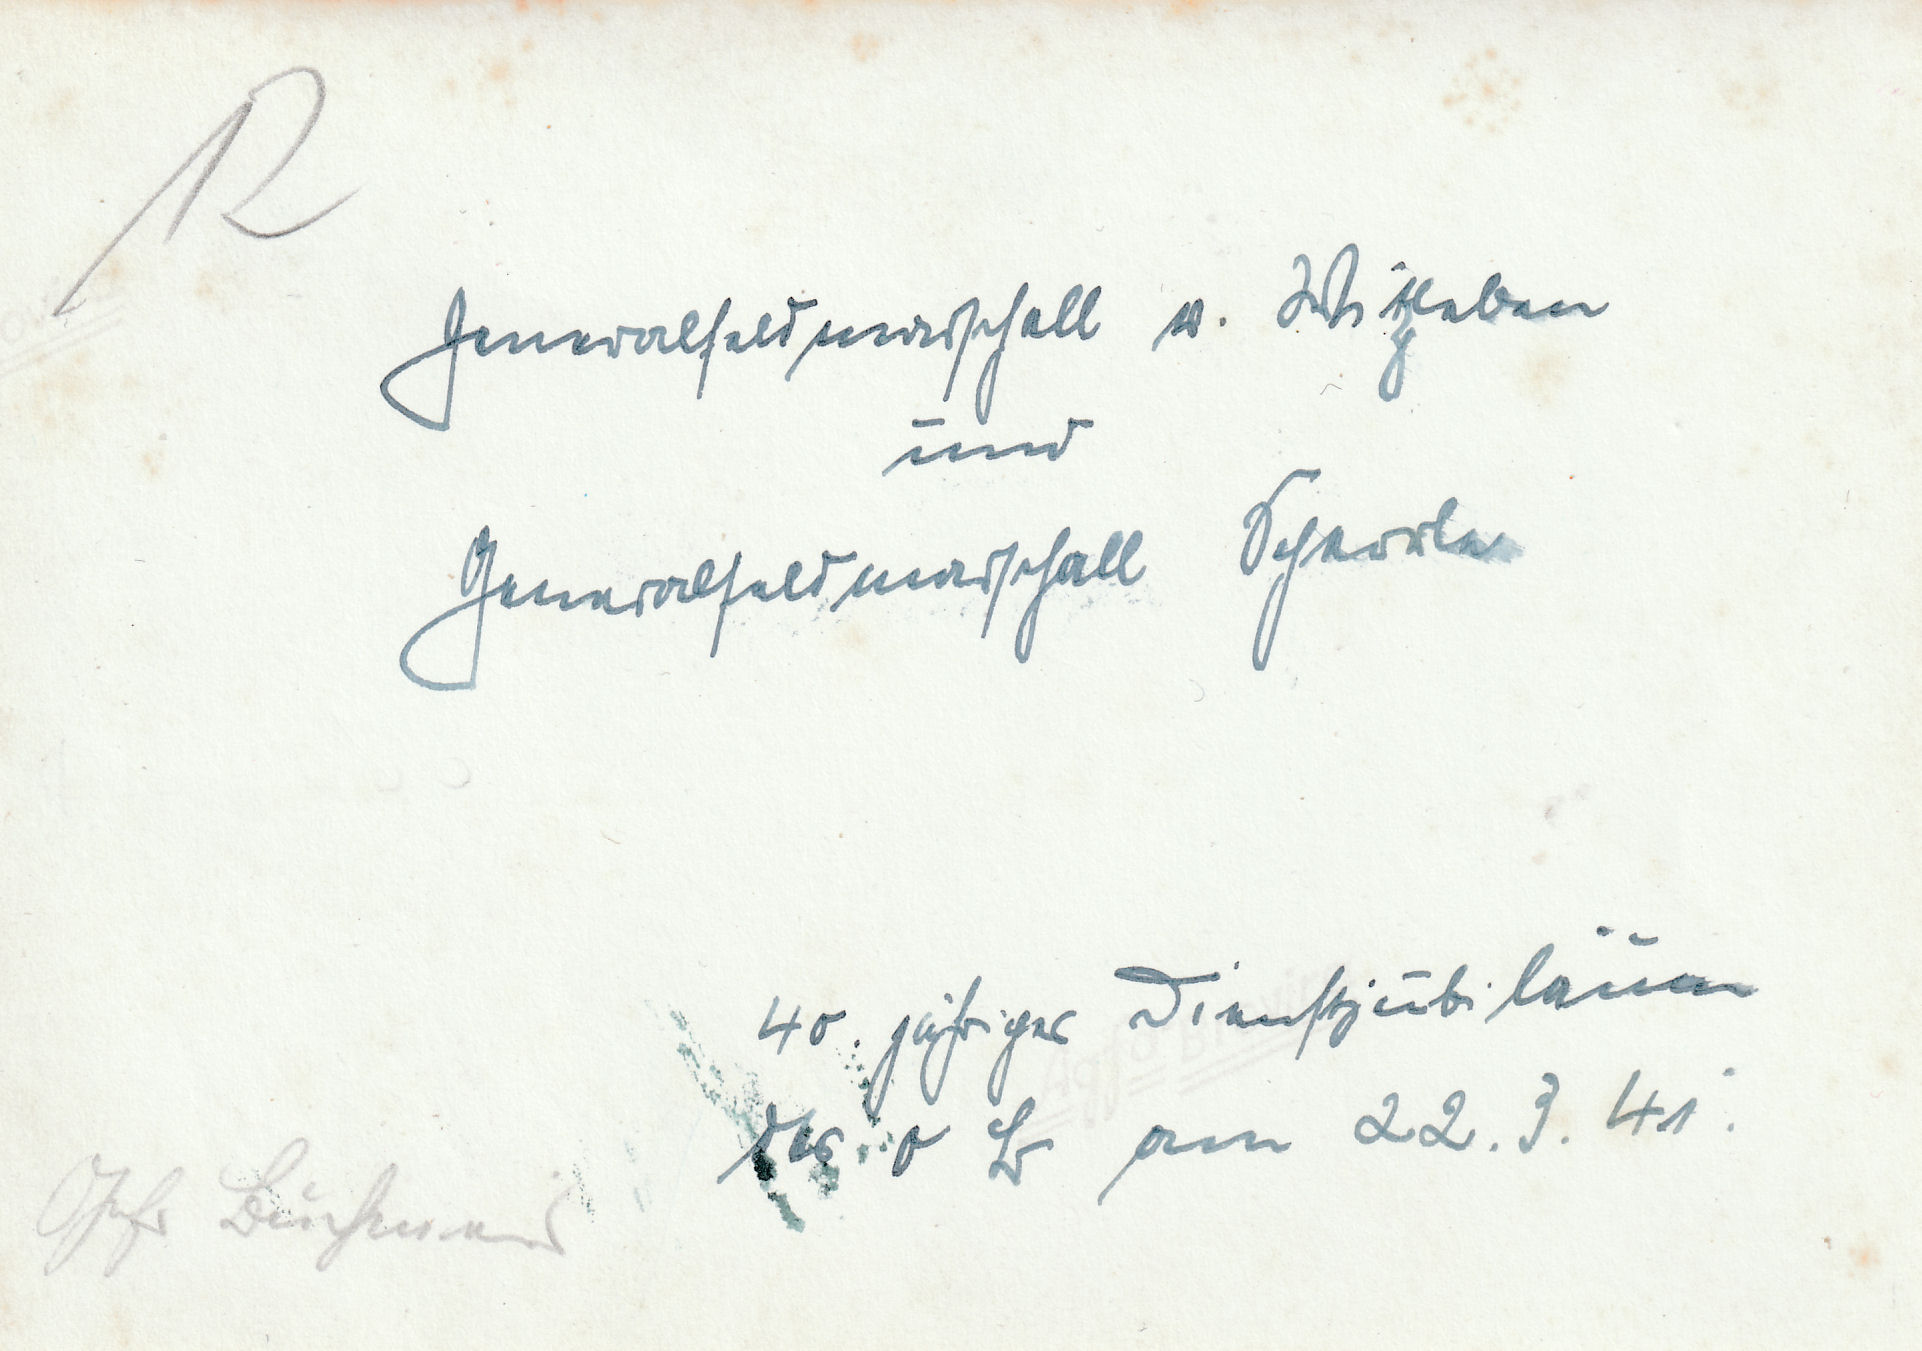 12
Generalfeldmarschall v. Witzleben
und
Generalfeldmarschall Sperrle
40. jähriges Dienstjubiläum
des O B am 22.3.41.
Agfa Brovira
Gefr